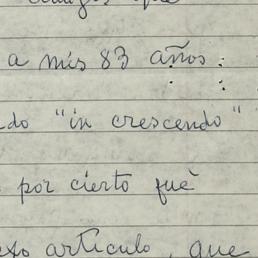 a mis 83 años :
do "in crescendo"
por cierto fué
artículo, que